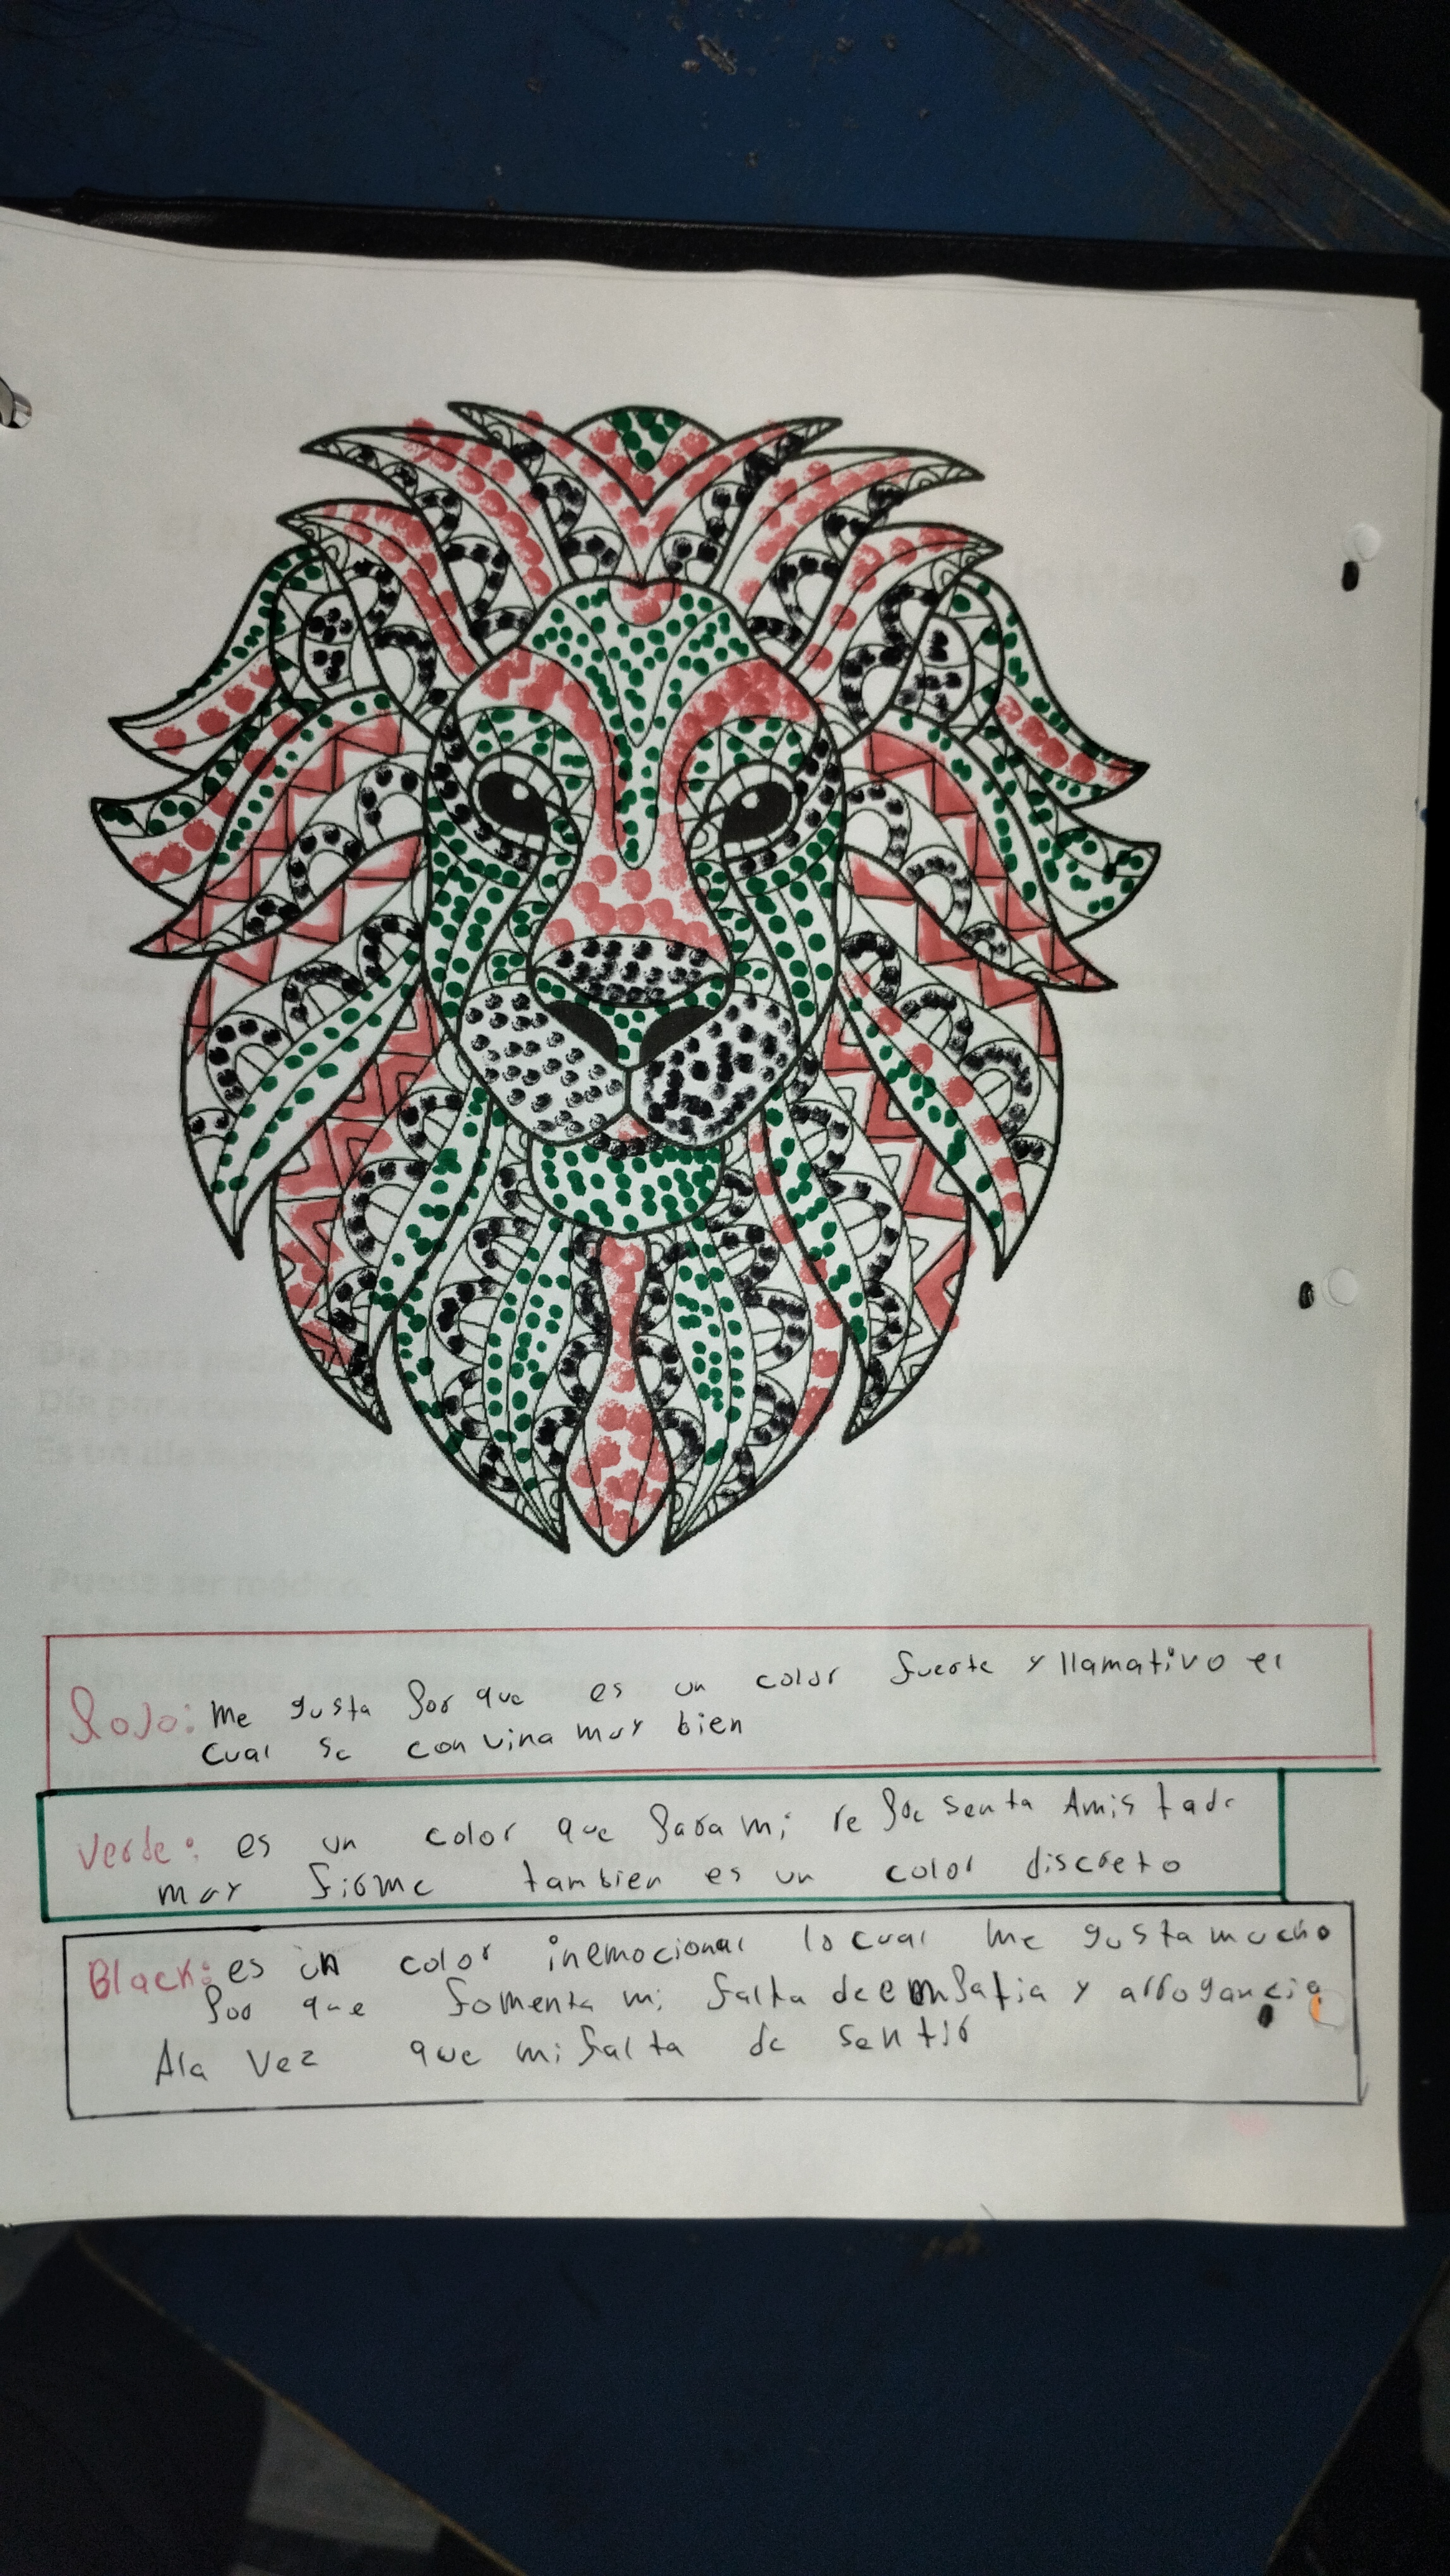 Rojo: Me gusta por que es un color fuerte y llamativo el
cual se convina muy bien
Verde: es un color que para mi representa Amistade
muy firme tambien es un color discreto
Black: es un color inemocional lo cual me gusta mucho
por que fomenta mi falta de empatia y arrogancia
Ala vez que mi falta de sentir